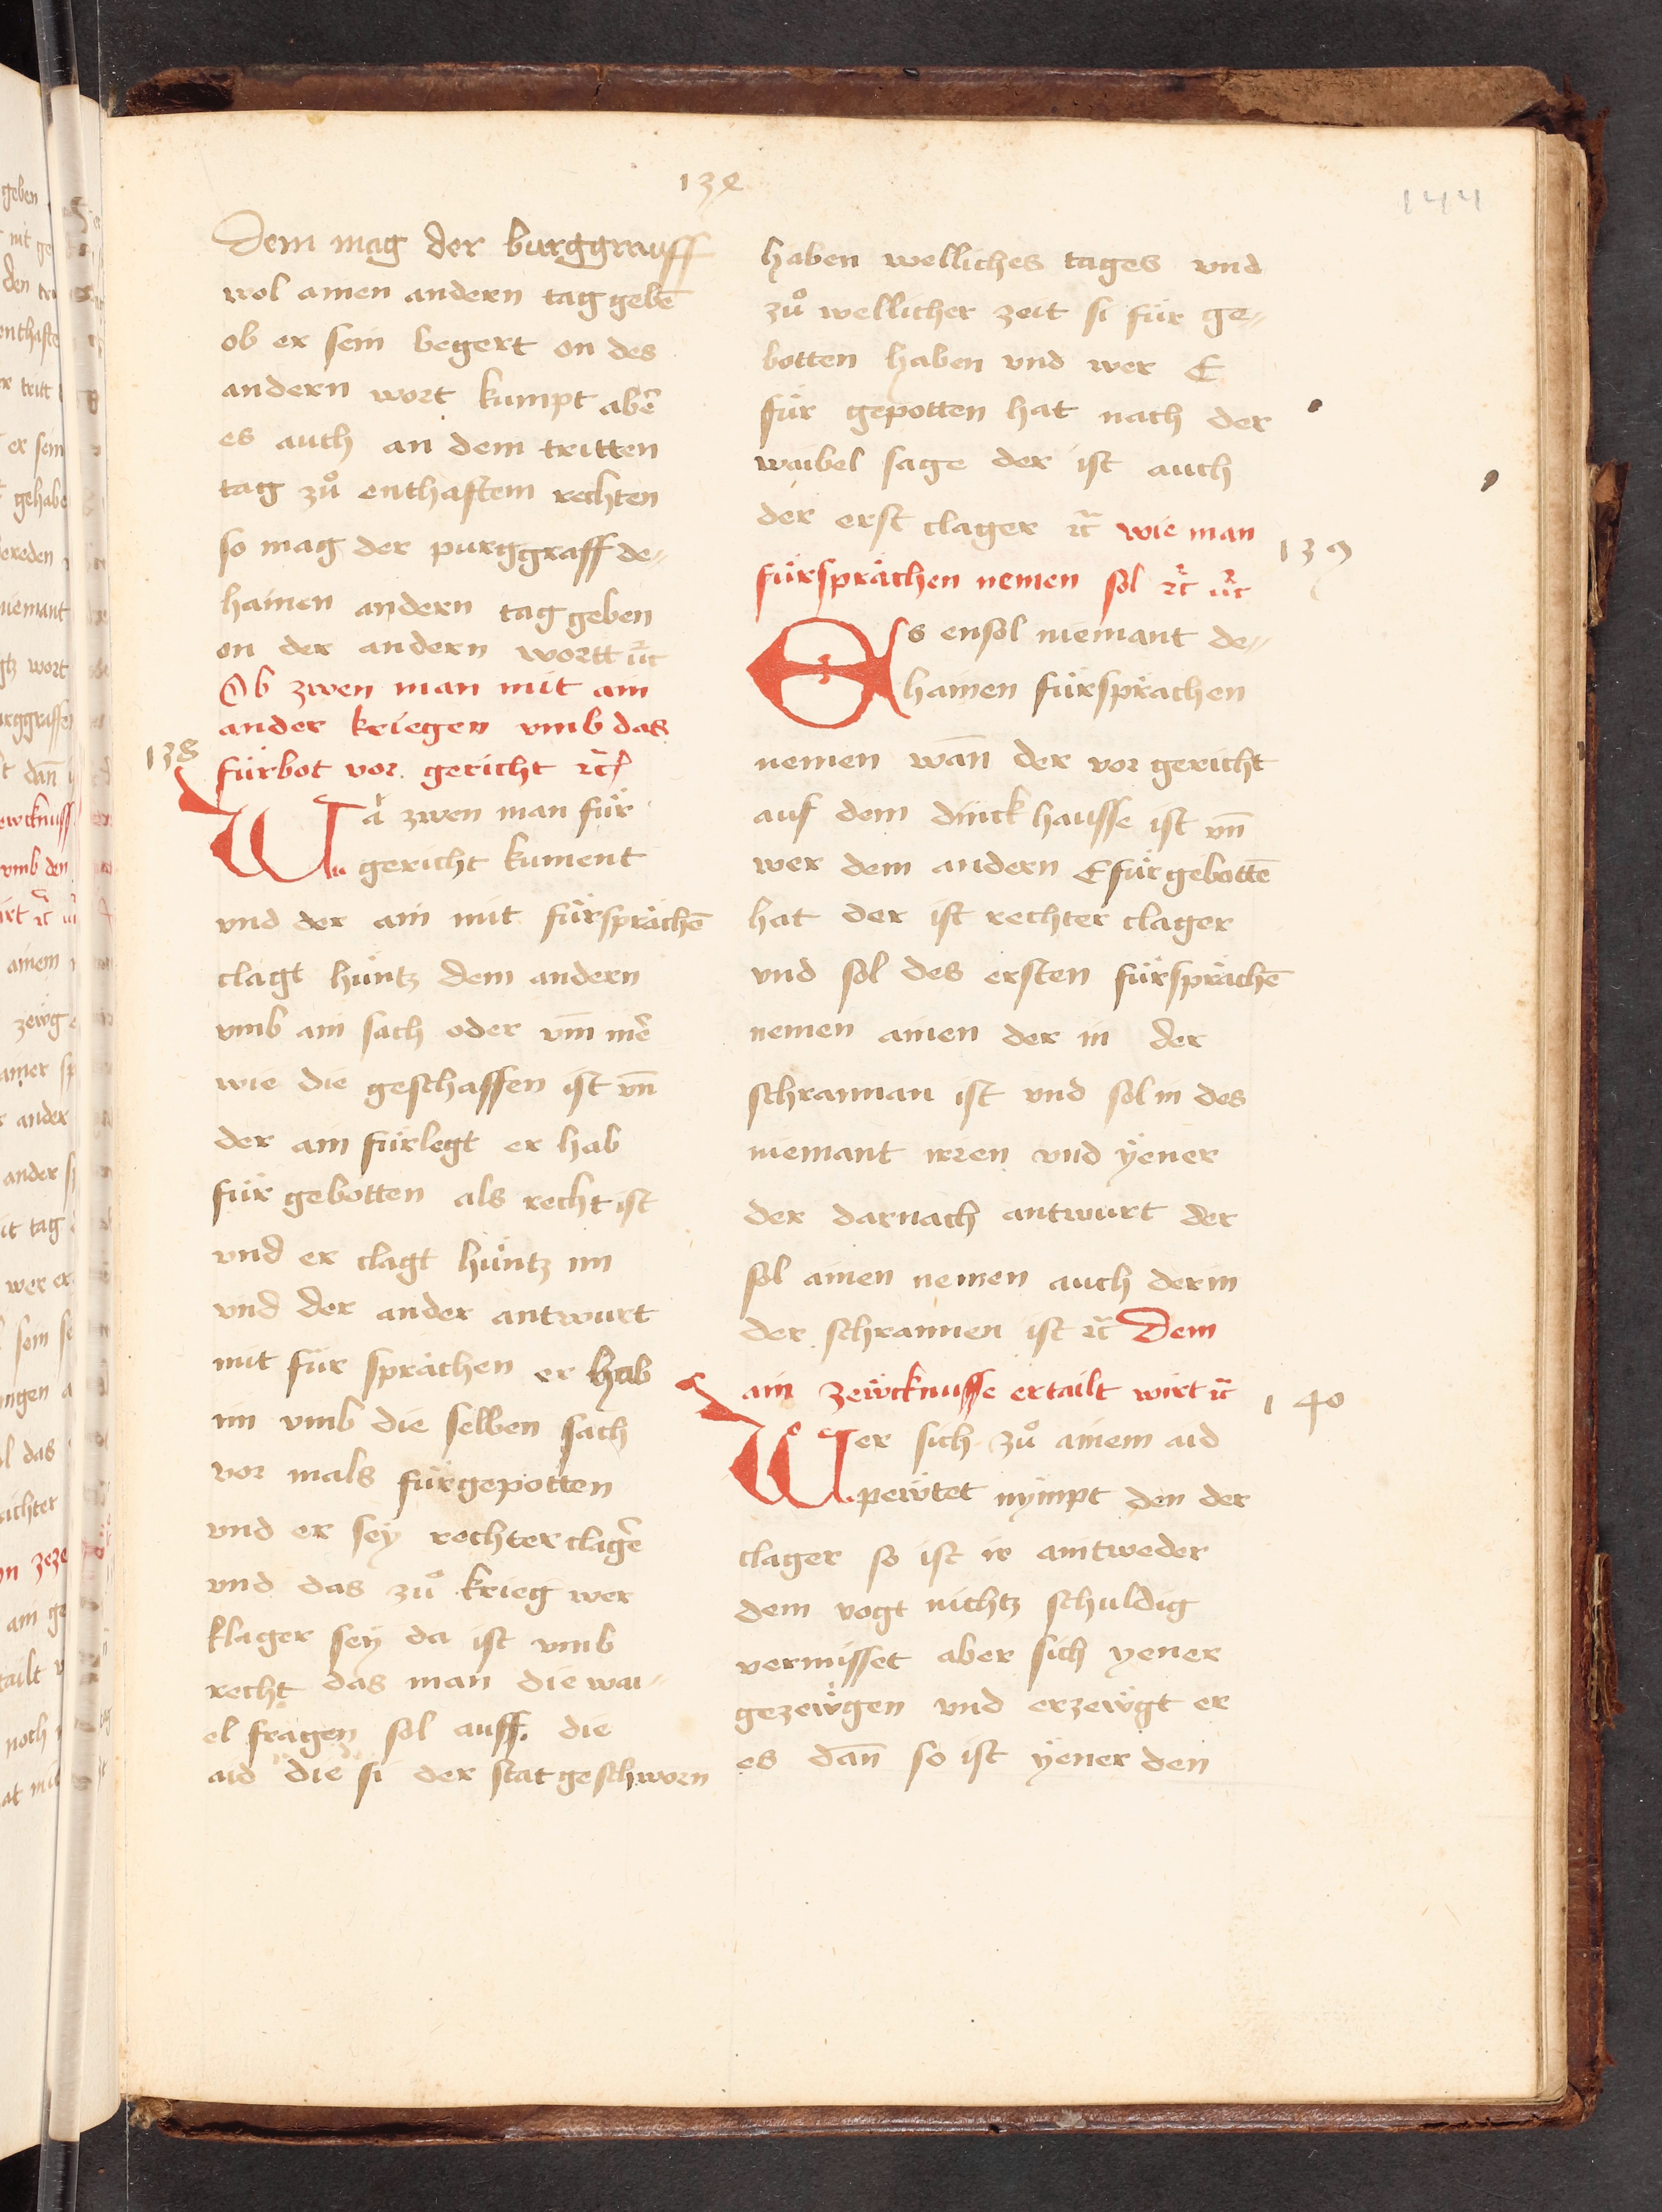 13e
144
Dem mag der burggrauff
wol ainen andern tag gebē
ob er sein begert on des
andern wort kumpt abē
es auch an dem tritten
tag zů enthaftem rechten
so mag der purggraff de-
hainen andern tag geben
on der andern wortt ꝛc̃
Ob zwen man mit ain
ander kriegen vmb das
138
fürbot vor gericht ꝛc̃
Wa zwen man für
gericht kument
vnd der ain mit fürsprächē
clagt hüntz dem andern
vmb ain sach oder vm̄ mē
wie die geschaffen ist vn̄
der ain fürlegt er hab
für gebotten als recht ist
vnd er clagt hüntz im
vnd der ander antwurt
mit für sprächen er hab
im vmb die selben sach
vor mals fürgepotten
vnd er sey rechter clagē
vnd das zů krieg wer
klager sey da ist vmb
recht das man die wai-
el fragen sol auff die
aid die si der stat geschworn
haben welliches tages vnd
zů wellicher zeit si für ge-
botten haben vnd wer E
für gepotten hat nach der
waibel sage der ist auch
der erst clager ꝛc̃ wie man
139
fürsprächen nemen sol ꝛc̃ ꝛc̃
Es ensol niemant de-
hainen fürsprächen
nemen wan̄ der vor gericht
auf dem dinckhausse ist vn̄
wer dem andern E fürgebottē
hat der ist rechter clager
vnd sol des ersten fürsprächē
nemen ainen der in der
schrannan ist vnd sol in des
niemant irren vnd ÿener
der darnach antwurt der
sol ainen nemen auch der in
der schrannen ist ꝛc̃ Dem
ain zewcknusse ertailt wirt ꝛc̃
140
Wer sich zů ainem aid
pewtet nympt den der
clager so ist ir aintweder
dem vogt nichtz schuldig
vermisset aber sich yener
gezewgen vnd erzewgt er
es dan̄ so ist ÿener den